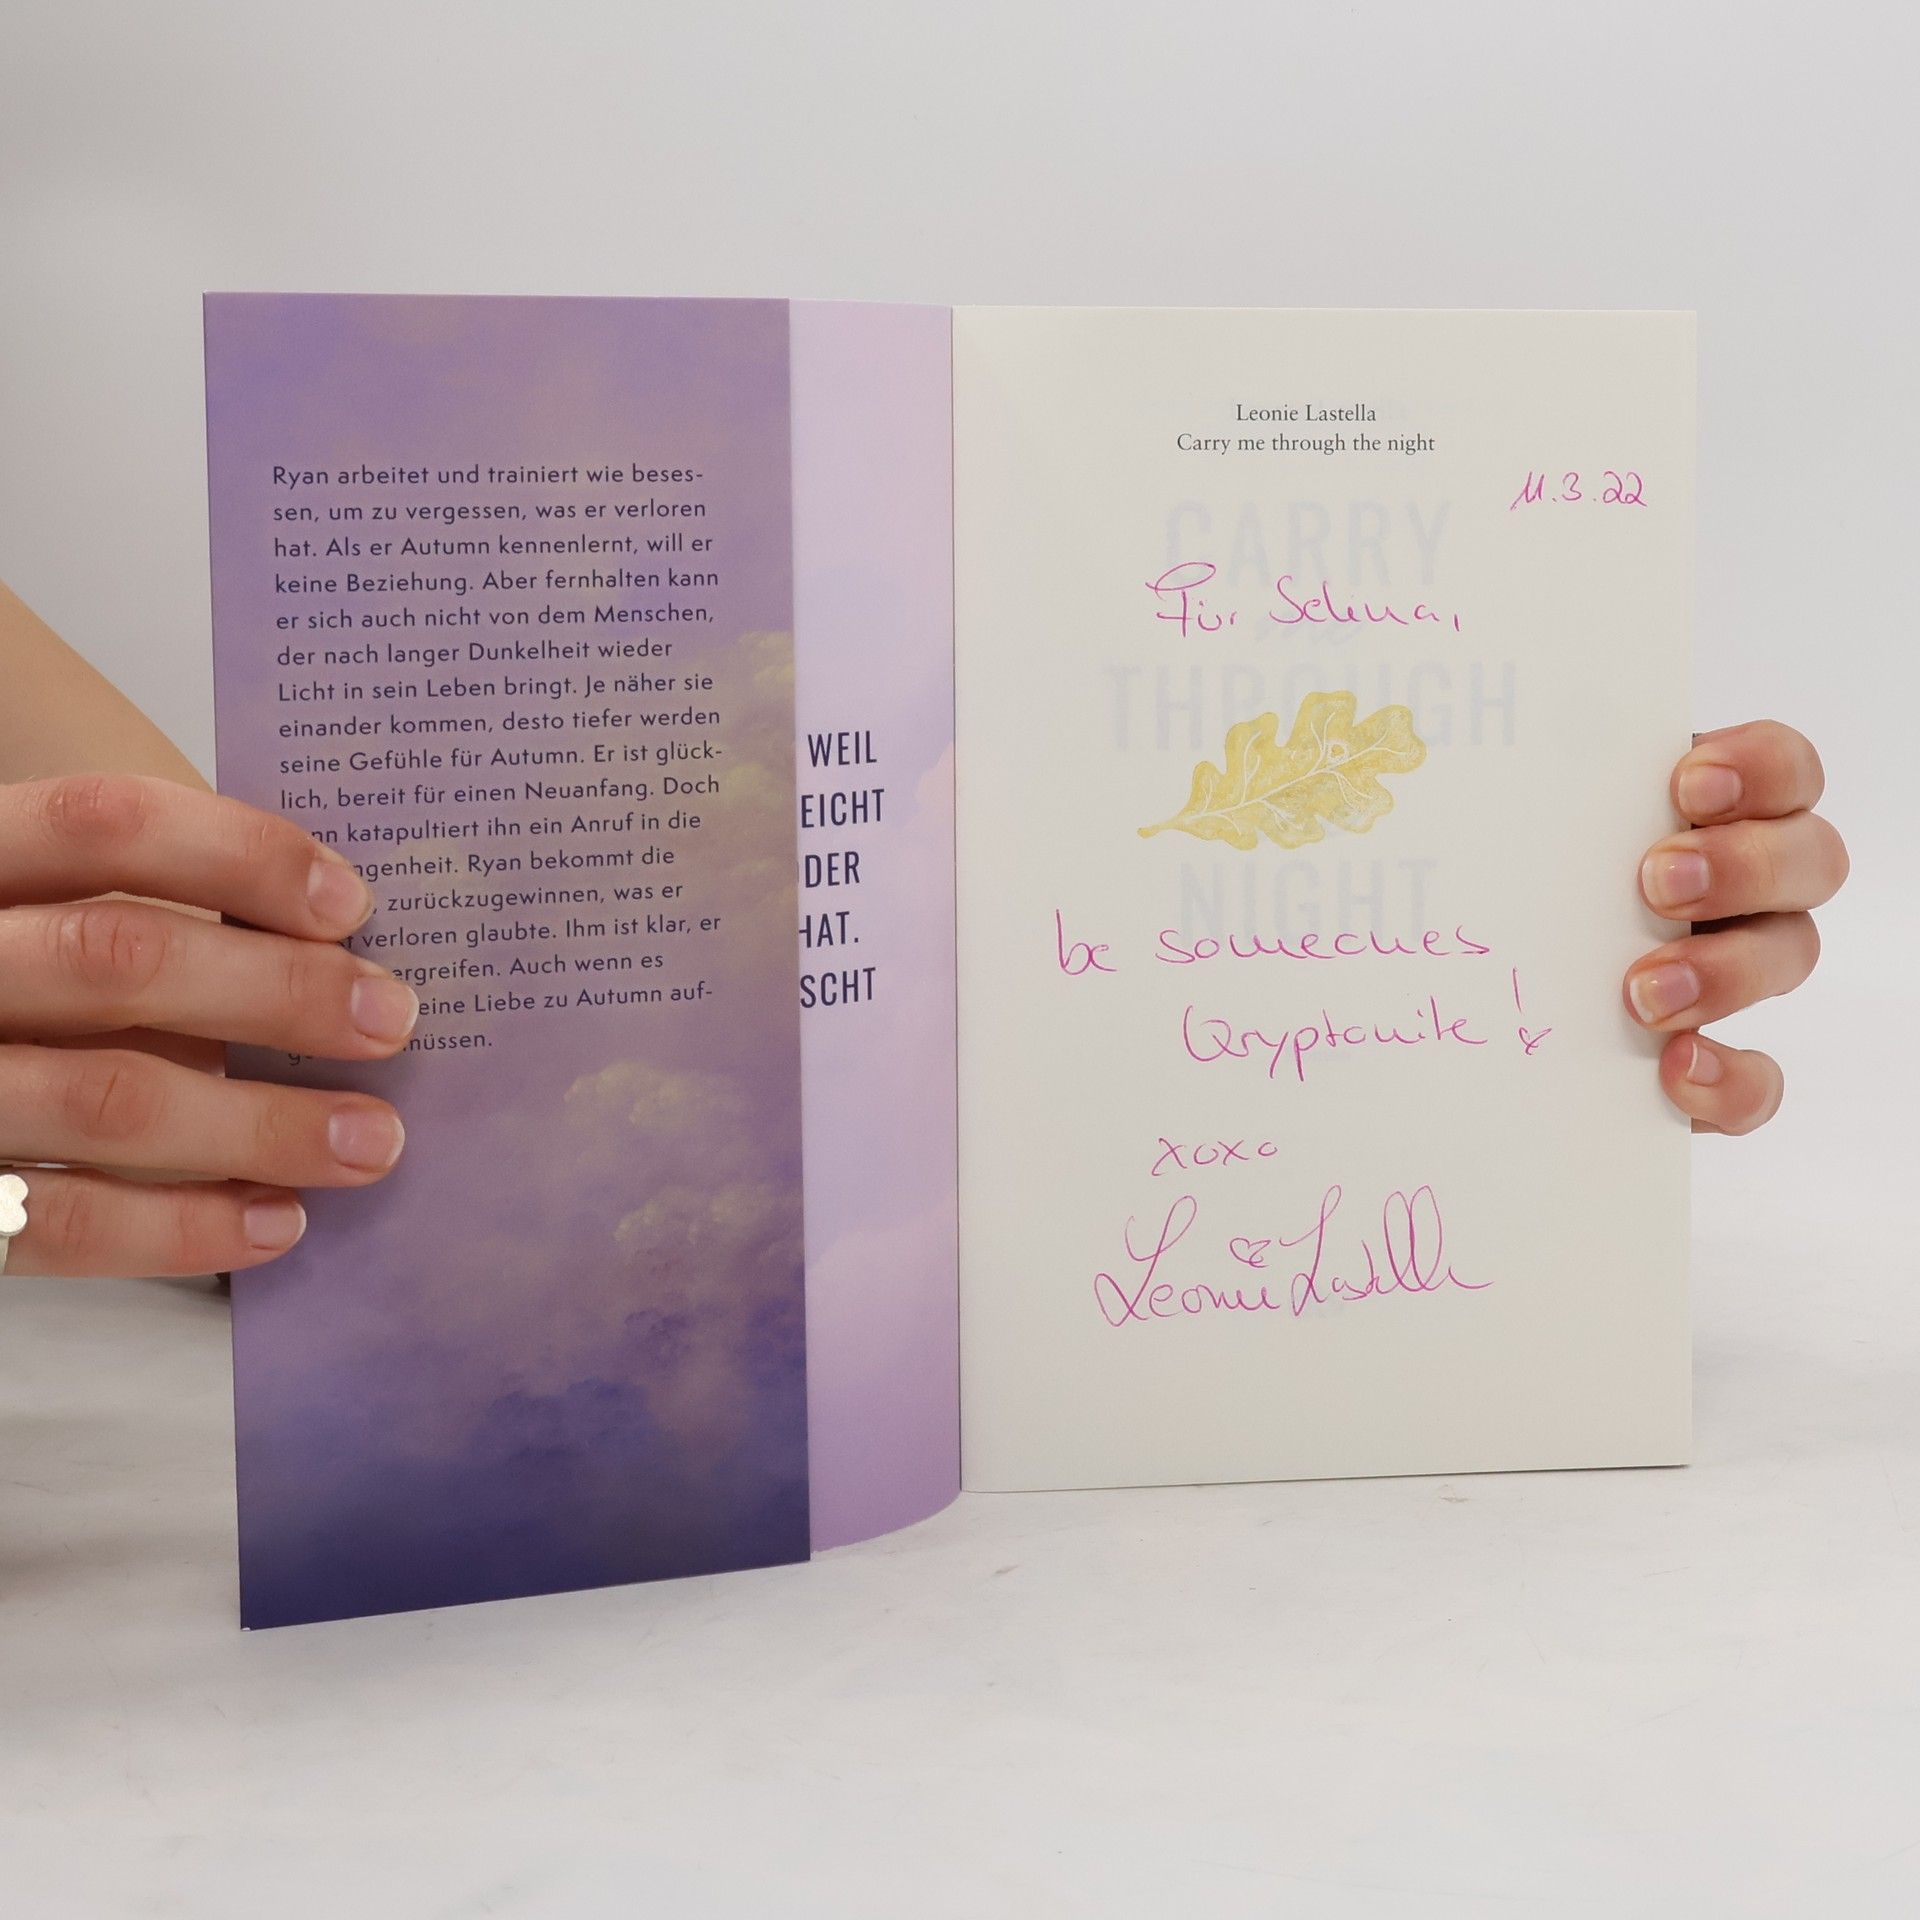 Ryan arbeitet und trainiert wie beses-
sen, um zu vergessen, was er verloren
hat. Als er Autumn kennenlernt, will er
keine Beziehung. Aber fernhalten kann
er sich auch nicht von dem Menschen,
der nach langer Dunkelheit wieder
Licht in sein Leben bringt. Je näher sie
einander kommen, desto tiefer werden
seine Gefühle für Autumn. Er ist glück-
lich, bereit für einen Neuanfang. Doch
nn katapultiert ihn ein Anruf in die
ngenheit. Ryan bekommt die
, zurückzugewinnen, was er
verloren glaubte. Ihm ist klar, er
ergreifen. Auch wenn es
eine Liebe zu Autumn auf-
müssen.
WEIL
EICHT
DER
HAT.
SCHT
Leonie Lastella
Carry me through the night
11.3.22
CARRY
Für Selina,
THROUGH
NIGHT
be someones
Qryptonite!
xoxo
Leonie Lastella